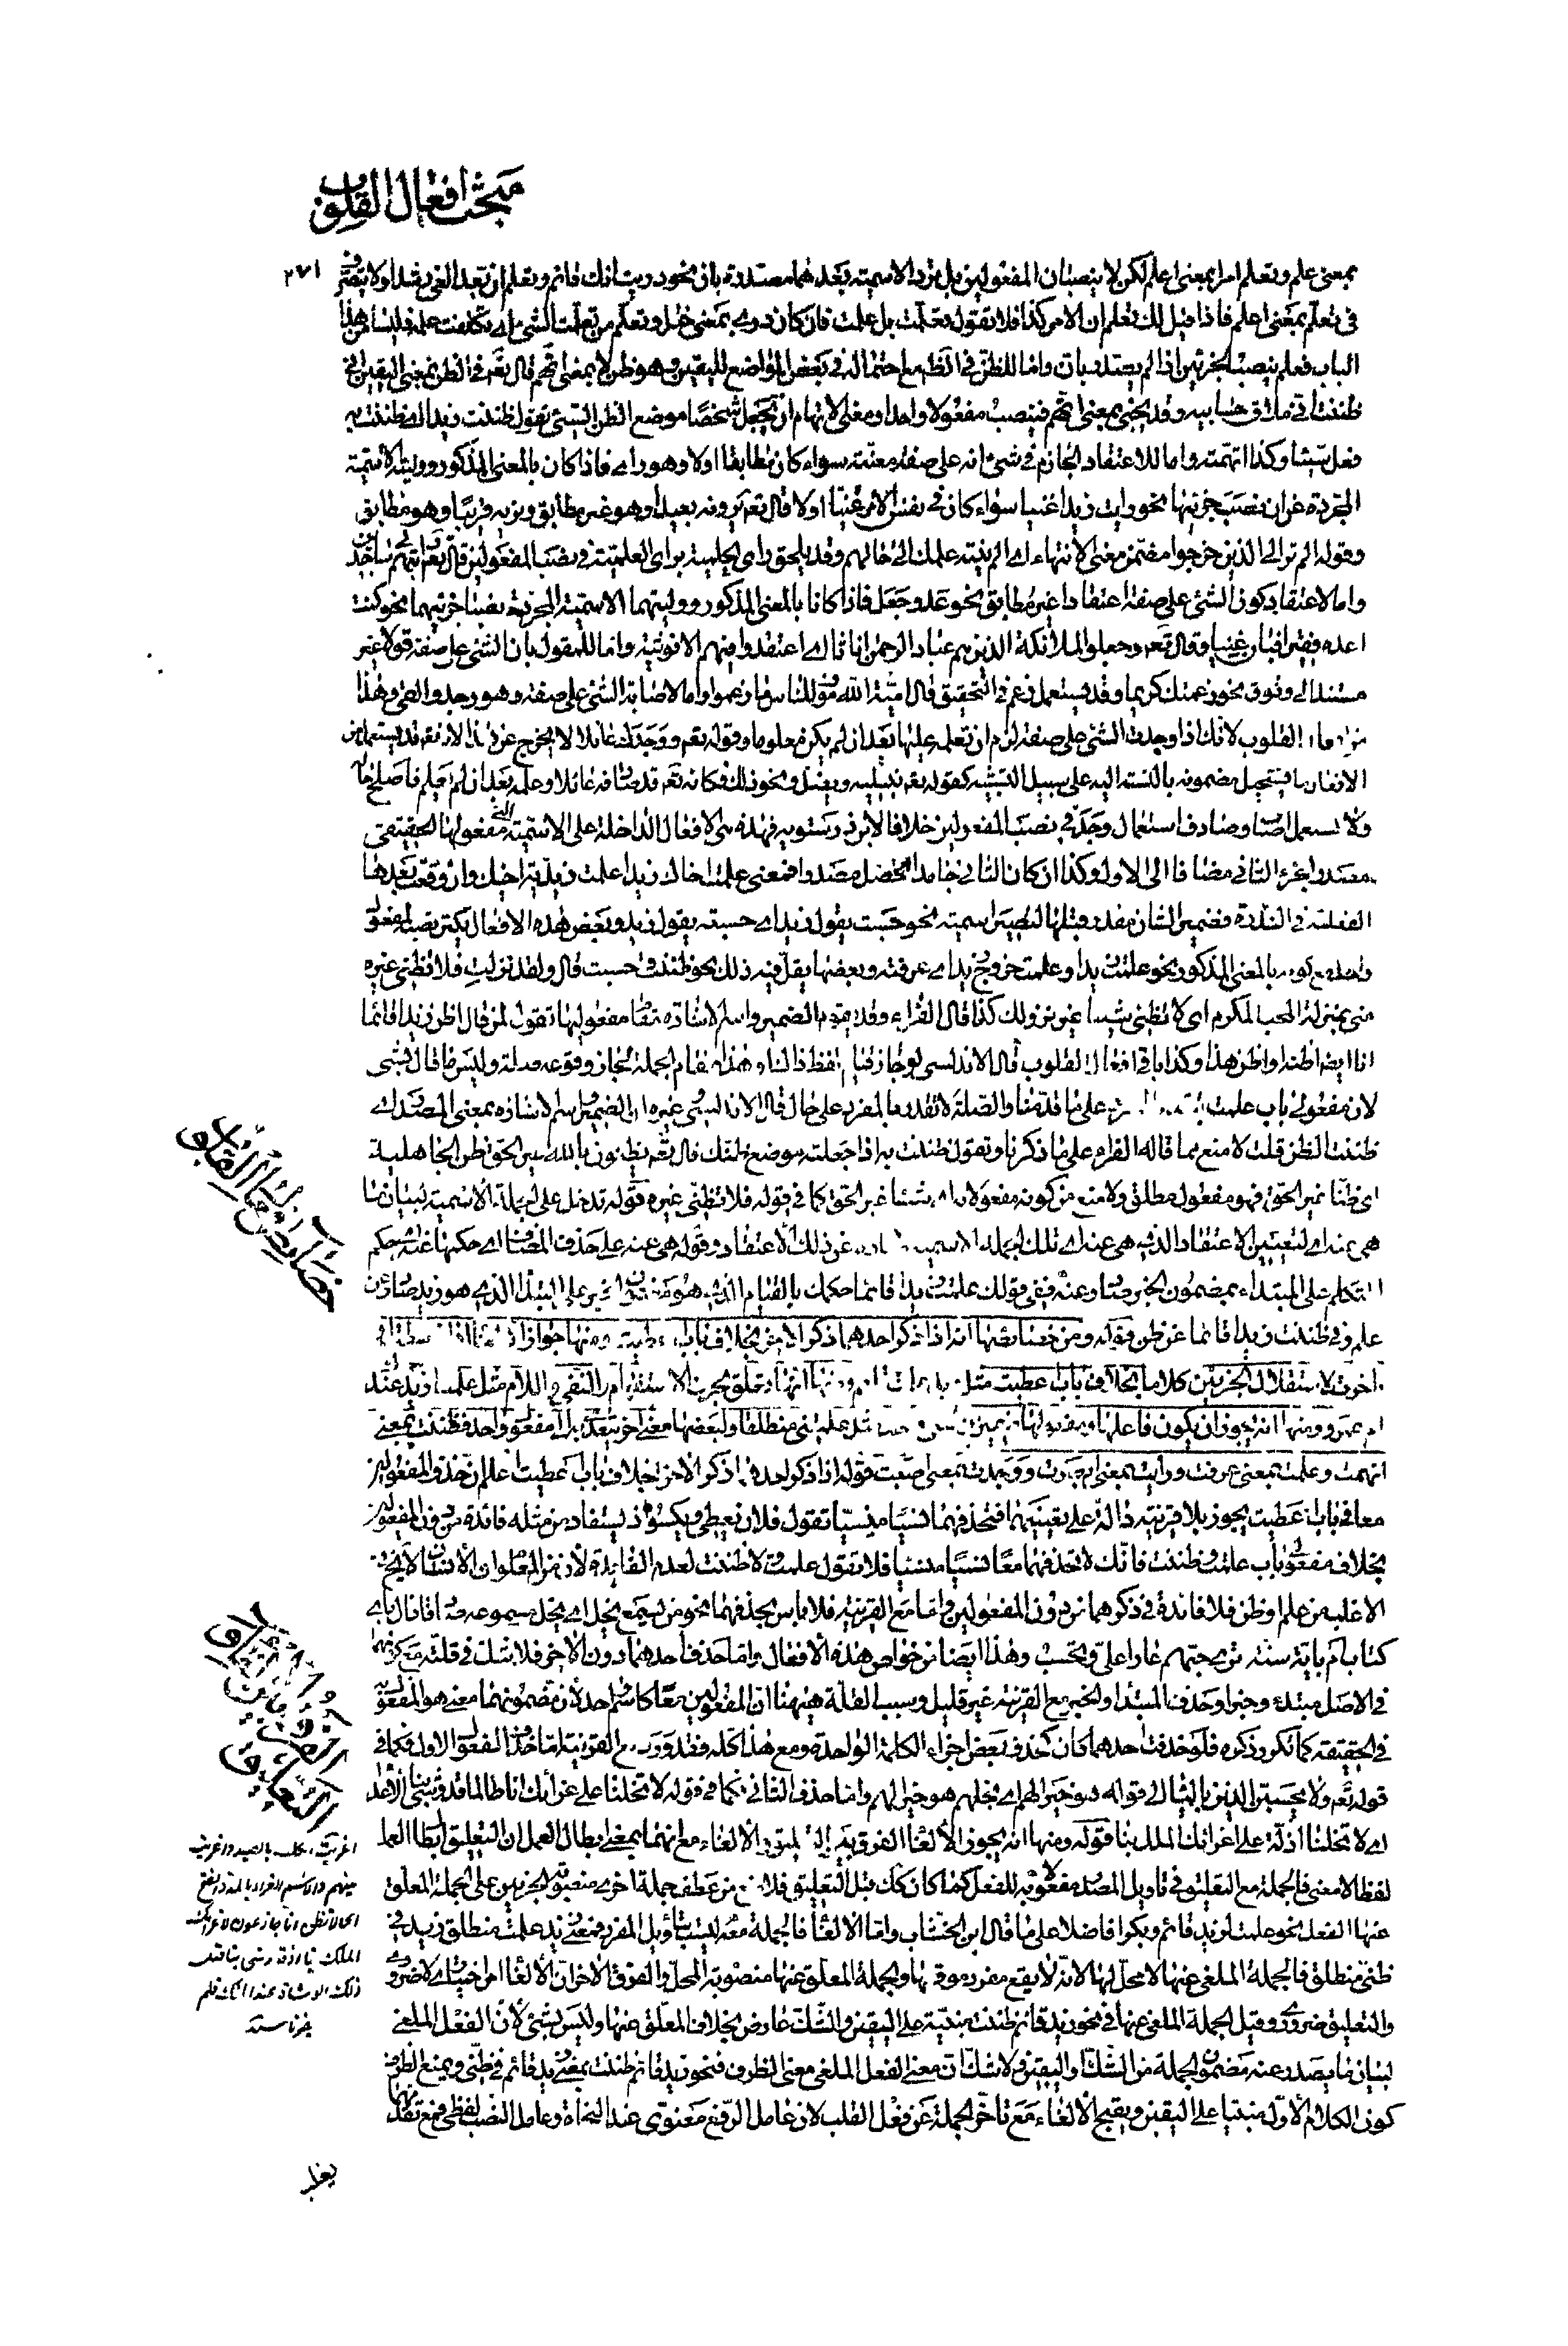 مبحث افعال القلوب
٢٧١
بمعنى علم وتعلم امرا بمعنى اعلم لكن لا ينصبان المفعولين بل ترد الاسمية بعدهما مصدرة بان نحو دريت انك قائم وتعلم ان بعد الغى رشدا ولا يتصرف
فى تعلم بمعنى اعلم فاذا قيل لك تعلم ان الامر كذا فلا تقول تعلمت بل علمت فان كان درى بمعنى ختل وتعلم من تعلمت الشئ اى تكلفت علمه فليسا من هذا
الباب فعلم ينصب الجزئين اذا لم يصدر بان واما للظن فى الظاهر مع احتماله فى بعض المواضع لليقين وهو ظن لا بمعنى اتهم قال تعم فى الظن بمعنى اليقين انى
ظننت انى ملاق حسابيه وقد يجئ بمعنى اتهم فينصب مفعولا واحدا ومعنى الاتهام ان تجعل شخصا موضع الظن السيئ تقول ظننت زيدا اى ظننت به
فعل سيئا وكذا اتهمته واما للاعتقاد الجازم فى شئ انه على صفة معينة سواء كان مطابقا اولا وهو راى فاذا كان بالمعنى المذكور ووليته الاسمية
المجردة عن ان نصب جزئيها نحو رايت زيدا غنيا سواء كان فى نفس الامر غنيا اولا قال تعم يرونه بعيدا وهو غير مطابق ونريه قريبا وهو مطابق
وقوله الم تر الى الذين خرجوا مضمن معنى الانتهاء اى الم ينته علمك الى حالهم وقد يلحق راى الحلمية براى العلمية فى نصب المفعولين قال تعم رايتهم لى ساجدين
واما لاعتقاد كون الشئ على صفة اعتقادا غير مطابق نحو عد وجعل فاذا كانا بالمعنى المذكور ووليتهما الاسمية المجردة نصبا جزئيهما نحو كنت
اعده فقيرا فبان غنيا وقال تعم وجعلوا الملائكة الذين هم عباد الرحمن اناثا اى اعتقدوا فيهم الانوثية واما للقول بان الشئ على صفة قولا غير
مستند الى وثوق نحو زعمتك كريما وقد يستعمل زعم فى التحقيق قال امية الله موف للناس ما زعموا واما لاصابة الشئ على صفة وهو وجد والفى وهذا
القلوب لانك اذا وجدت الشئ على صفة لزم ان تعلمه عليها بعد ان لم يكن معلوما وقوله تعم ووجدك عائلا لا يخرج عن
الافعال ما يستحيل مضمونه بالنسبة اليه على سبيل التشبيه كقوله تعم نبتليه ويفتن ونحو ذلك فكانه تعم قد صادفه عائلا وعلمه بعد ان لم يعلم فاصلح حاله
ولا يستعمل اصاب وصادف استعمال وجد فى نصب المفعولين خلافا لابن درستويه فهذه هى الافعال الداخلة على الاسمية التى مفعولها الحقيقى
مصدر الجزء الثانى مضافا الى الاول وكذا ان كان الثانى جامدا لتحصل مصدرا فمعنى علمت اخاك زيدا علمت زيدية اخيك وان وقعت بعدها
الفعلية فى الندرة فضمير الشان مقدر قبلها لتصير اسمية نحو حسبت يقول زيد اى حسبته يقول زيد وبعض هذه الافعال يكثر نصبه لمفعول
بالمعنى المذكور نحو علمت زيدا وعلمت خروج زيد اى عرفته وبعضها يقل فيه ذلك نحو ظننت وحسبت قال ولقد نزلت فلا تظنى غيره
منى بمنزلة المحب المكرم اى لا تظنى شيئا غير نزولك كذا قال الفراء وقد يقوم الضمير واسم الاشارة مقام مفعوليها تقول لمن قال اظن زيدا قائما
انا ايضا اظنه او اظن هذا وكذا باقى افعال القلوب قال الاندلسى
لان مفعولى باب علمت على ما قدمنا والصلة لا تقدر بالمفرد على حال
ظننت الظن قلت لا منع مما قاله الفراء على ما ذكرنا وتقول ظننت به اذا جعلته موضع ظنك قال تعم يظنون بالله غير الحق ظن الجاهلية
اى ظنا غير الحق فهو مفعول مطلق ولا منع من كونه مفعولا به اى شيئا غير الحق كما فى قوله فلا تظنى غيره قوله تدخل على الجملة الاسمية لبيان ما
هى عنه اى لتعيين الاعتقاد الذى هى عنه اى تلك الجملة الاسمية عن ذلك الاعتقاد وقوله هى عنه على حذف المضاف اى حكمها عنه اى حكم
المتكلم على المبتداء بمضمون الخبر صادر عنه ففى قولك علمت زيدا قائما حكمك بالقيام الذى هو مضمون الخبر على المبتدا الذى هو زيد صادر عن
علم وفى ظننت زيدا قائما عن ظن قوله ومن خصائصها انه اذا ذكر احدهما ذكر الاخر بخلاف باب اعطيت ومنها جواز
لاستقلال الجزئين كلاما بخلاف باب اعطيت مثل ومنها انها تعلق بحرف الاستفهام والنفى واللام مثل علمت ازيد عندك
ام عمرو ومنها انه يجوز ان يكون فاعلها ومفعولها ضميرين مثل علمتنى منطلقا ولبعضها معنى اخر يتعدى به الى مفعول واحد فظننت بمعنى
اتهمت وعلمت بمعنى عرفت ورايت بمعنى ابصرت ووجدت بمعنى اصبت قوله اذا ذكر احدهما ذكر الاخر بخلاف باب اعطيت اعلم ان حذف المفعولين
معا فى باب اعطيت يجوز بلا قرينة دالة على تعيينهما فتحذفهما نسيا منسيا تقول فلان يعطى ويكسو اذ يستفاد من مثله فائدة من دون المفعولين
بخلاف مفعولى باب علمت وظننت فانك لا تحذفهما معا نسيا منسيا فلا تقول علمت ولا ظننت لعدم الفائدة لان من المعلوم ان الانسان لا يخ فى
الاغلب من علم او ظن فلا فائدة فى ذكرهما من دون المفعولين واما مع القرينة فلا باس بحذفهما نحو من يسمع يخل اى يخل مسموعه صادقا قال باى
كتاب ام باية سنة ترى حبهم عارا على وتحسب وهذا ايضا من خواص هذه الافعال واما حذف احدهما دون الاخر فلا شك فى قلته مع كونهما
فى الاصل مبتداء وخبرا وحذف المبتداء والخبر مع القرينة غير قليل وسبب القلة هيهنا ان المفعولين معا كاسم واحد لان مضمونهما معا هو المفعول به
فى الحقيقة كما تكرر ذكره فلو حذفت احدهما كان كحذف بعض اجزاء الكلمة الواحدة ومع هذا كله فقد ورد مع القرينة اما حذف المفعول الاول فكما فى
قوله تعم ولا يحسبن الذين بالياء الى قوله هو خيرا لهم اى بخلهم هو خيرا لهم واما حذف الثانى فكما فى قوله لا تخلنا على غرائك انا طالما قد وشى بنا الاعداء
اى لا تخلنا اذلة على اغرائك الملك بنا قوله ومنها انه يجوز الالغاء الفرق بين التعليق والالغاء مع انهما بمعنى ابطال العمل ان التعليق ابطال العمل
لفظا لا معنى فالجملة مع التعليق فى تاويل المصدر مفعولا به للفعل كما كان كك قبل التعليق فلا منع من عطف جملة اخرى منصوبة الجزئين على الجملة المعلق
عنها الفعل نحو علمت لزيد قائم وبكرا فاضلا على ما قال ابن الخشاب واما الالغاء فالجملة معه ليست بتاويل المفرد فمعنى زيد علمت منطلق زيد فى
ظنى منطلق فالجملة الملغى عنها لا محل لها لانه لا يقع مفرد موقعها والجملة المعلق عنها منصوبة المحل والفرق الاخر ان الالغاء امر اختيارى لا ضرورى
والتعليق ضرورى وقيل الجملة الملغى عنها فى نحو زيد قائم ظننت مبنية على اليقين والشك عارض بخلاف المعلق عنها وليس بشئ لان الفعل الملغى
لبيان ما يصدر عنه مضمون الجملة من الشك واليقين ولا شك ان معنى الفعل الملغى معنى الظرف فنحو زيد قائم ظننت بمعنى زيد قائم فى ظنى ويمنع الظرف
كون الكلام الاول مبنيا على اليقين ويقبح الالغاء مع تاخر الجملة عن فعل القلب لان عامل الرفع معنوى عند النحاة وعامل النصب لفظى فمع تقدمها
خصائص افعال القلوب